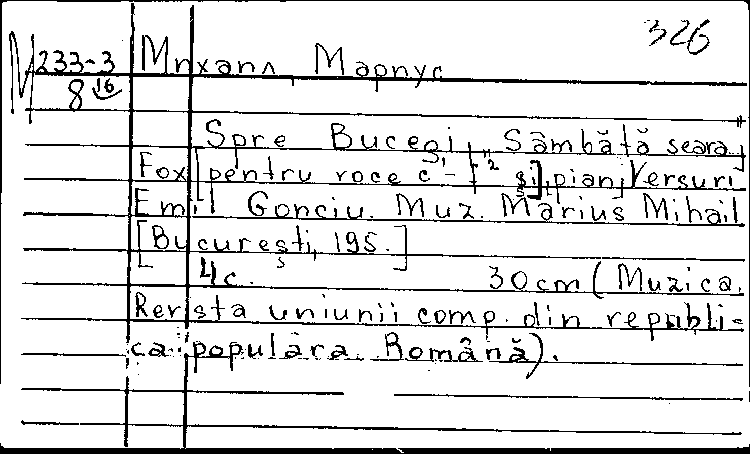 326
М 233-3 Михаил, Мариус
8 16
Spre Bucegi, "Sâmbătă seara"
Fox [pentru voce c'-f"2 și], pian, Versuri
Emil Gonciu. Muz. Marius Mihail
[București, 195.]
4 c. 30 cm (Muzica.
Revista uniunii comp. din republi=
ca populăra Română).